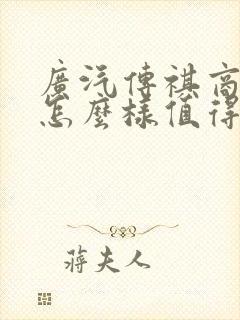 廣汽傳祺商
怎麼樣值得
蔣夫人